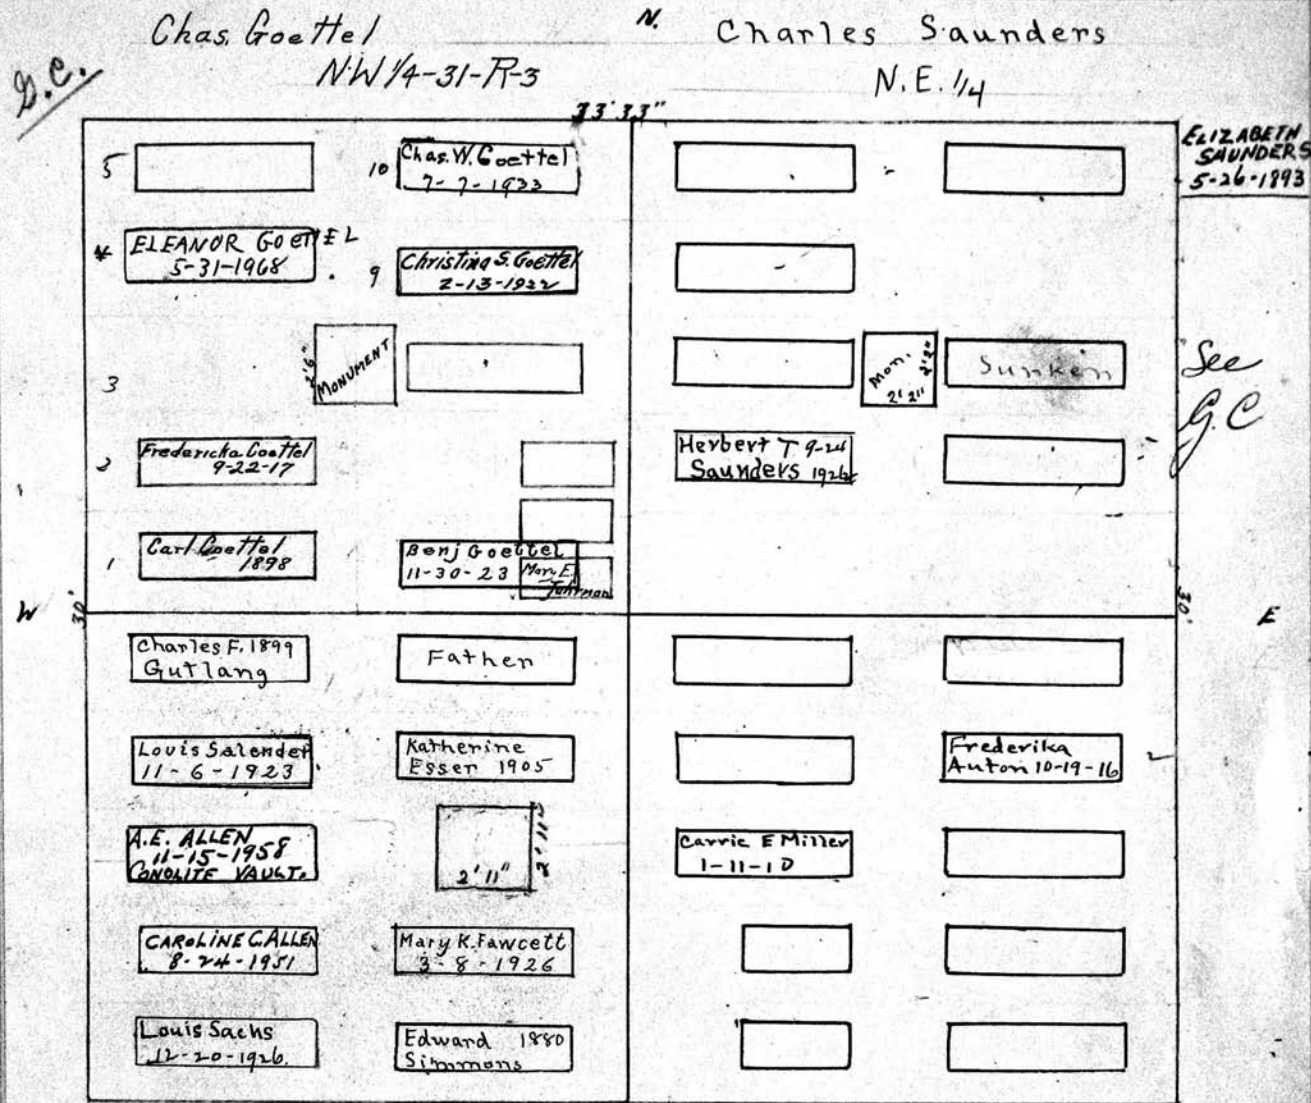 Chas. Goettel
N.
Charles Saunders
G.C.
N.W 1/4-31-R-3
N.E. 1/4
33'33"
ELIZABETH
SAUNDERS
5-26-1893
5
10
Chas. W. Goettel
7-7-1933
4
ELEANOR GOETTEL
5-31-1968
9
Christina S. Goettel
2-13-1922
3
2'6"
MONUMENT
Mon.
2'2"
2'2"
Sunken
See
G.C
2
Fredericka Goettel
9-22-17
Herbert T 9-24
Saunders 1926
1
Carl Goettel
1898
Benj Goettel
11-30-23
Mary E.
W
30'
30'
E
Charles F. 1899
Gutlang
Father
Louis Salender
11-6-1923
Katherine
Esser 1905
Frederika
Auton 10-19-16
A.E. ALLEN
11-15-1958
CONOLITE VAULT.
2'11"
2'11"
Carrie E Miller
1-11-10
CAROLINE C. ALLEN
8-24-1951
Mary K. Fawcett
3-8-1926
Louis Sachs
12-20-1926.
Edward 1880
Simmons